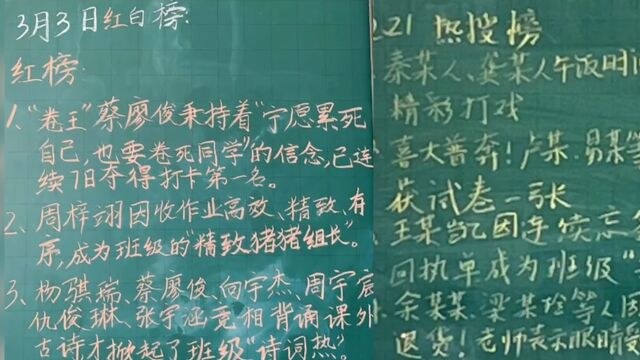 3月3日红白榜:
红榜:
1、“卷王”蔡廖俊秉持着“宁愿累死
自己，也要卷死同学”的信念，已连
续7日夺得打卡第一名。
2、周梓翊因收作业高效、精致、有
序，成为班级的“精致猪猪组长”。
3、杨骐瑞、蔡廖俊、向宇杰、周宇宸
仇俊琳、张宇涵竞相背诵课外
古诗才掀起了班级“诗词热”。
221 热搜榜
秦某人、龚某人午饭时
精彩打戏
喜大普奔！卢某、易某
获试卷一张
王某当几因连续忘
回执单成为班级“
余某某、梁某拴等人
退货！老师表示眼睛